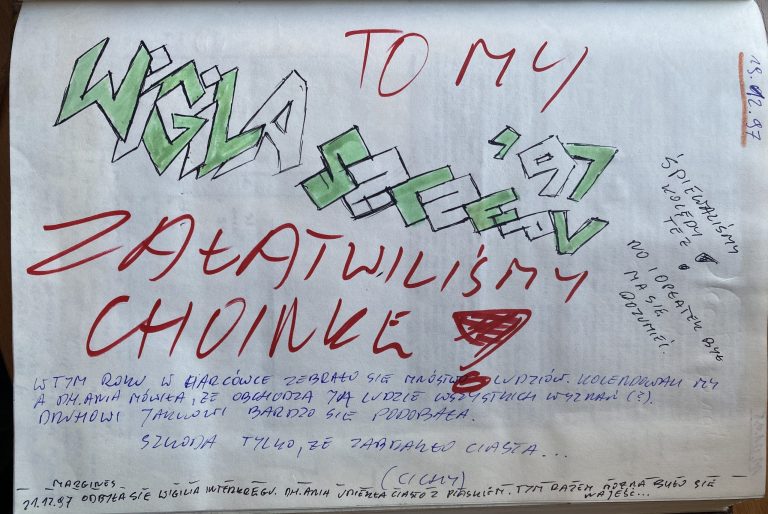 TO MY
WIGILIA
'97
ZAŁATWILIŚMY
CHOINKĘ
19.12.97
ŚPIEWALIŚMY
KOLĘDY
TEŻ
NO I OPŁATEK BYŁ
MA SIĘ
ROZUMIEĆ.
W TYM ROKU W HARCÓWCE ZEBRAŁO SIĘ MNÓSTWO LUDZIÓW. KOLENDOWALIŚMY
A DH. ANIA MÓWIŁA, ŻE OBCHODZĄ JĄ LUDZIE WSZYSTKICH WYZNAŃ (?).
DRUHOWI JAKUOWI BARDZO SIĘ PODOBAŁA.
SZKODA TYLKO, ŻE ZABRAKŁO CIASTA...
(CICHY)
MARGINES
21.12.97 ODBYŁA SIĘ WIGILIA INTERKRĘGU. DH. ANIA UPIEKŁA CIASTO Z PIASKIEM. TYM RAZEM MOŻNA BYŁO SIĘ
NAJEŚĆ...